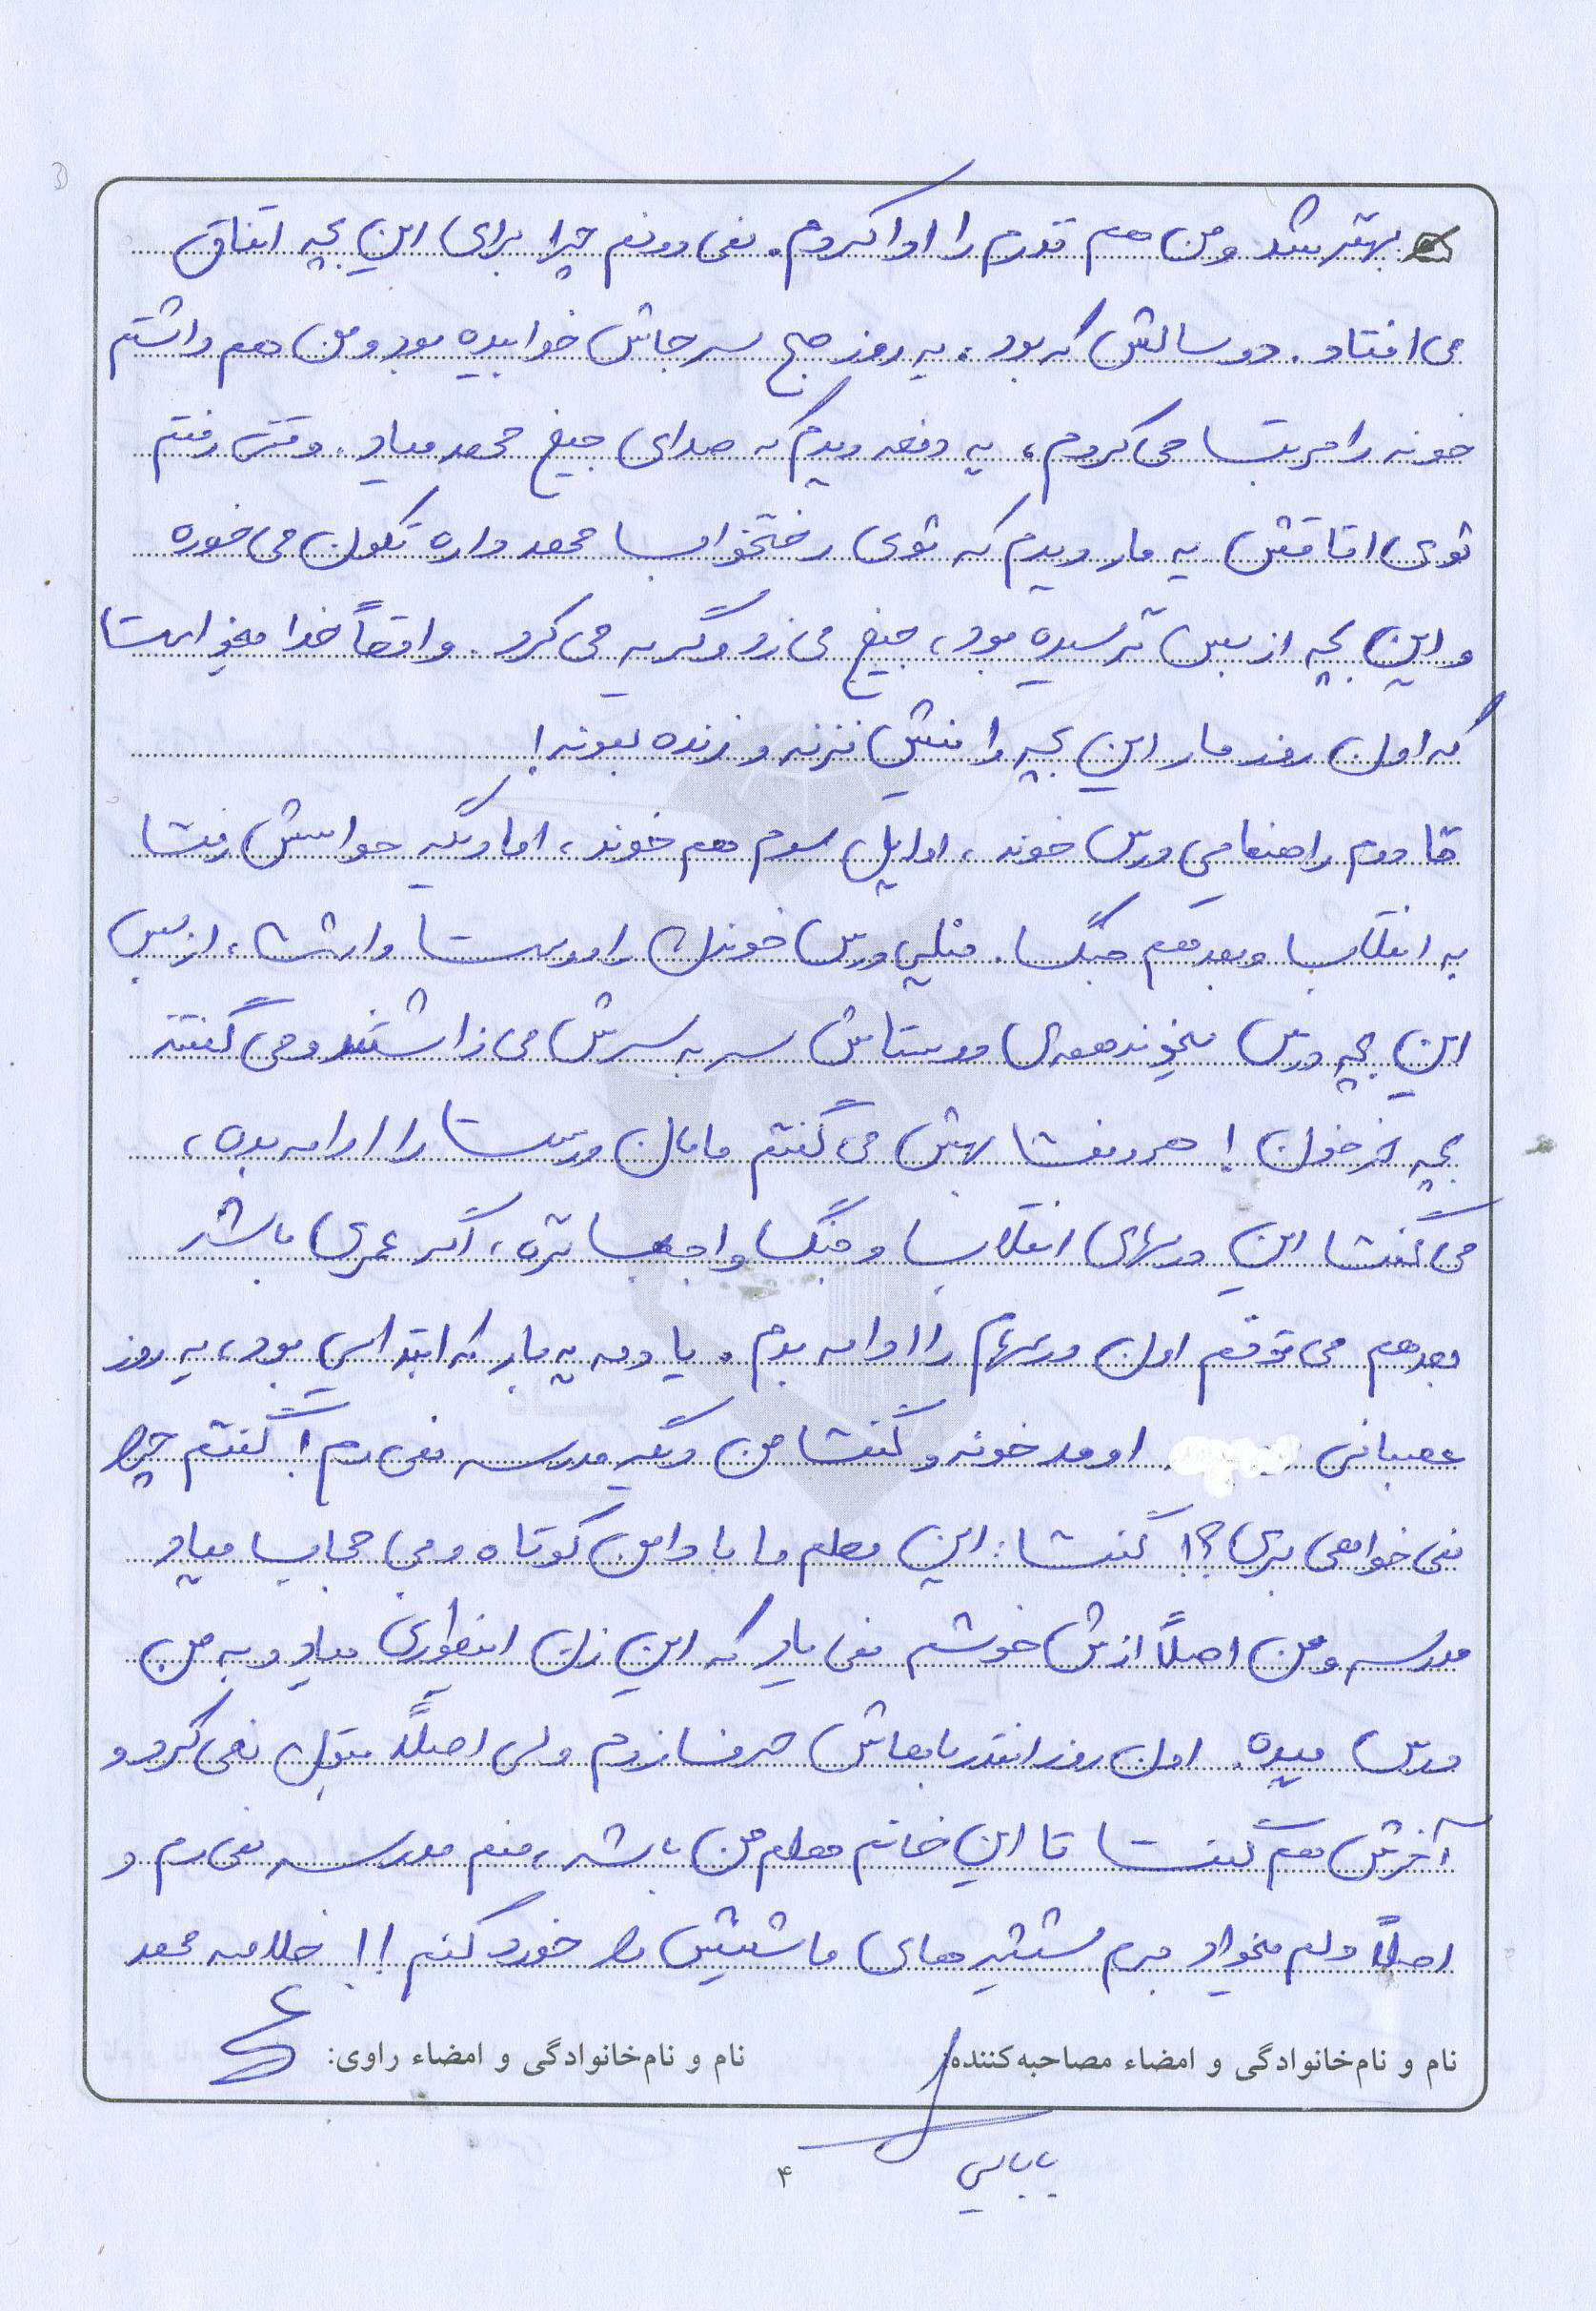 بهتر شد و من هم نذرم را ادا کردم. نمی دونم چرا برای این بچه اتفاق
می افتاد. دو سالش که بود. یه روز صبح سرجاش خوابیده بود و من هم داشتم
خونه را مرتب می کردم، یه دفعه دیدم که صدای جیغ محمد میاد. وقتی رفتم
توی اتاقش یه مار دیدم که توی رختخواب محمد داره تکون می خوره
و این بچه از بس ترسیده بود، جیغ می زد و گریه می کرد. واقعاً خدا میخواست
که اون روز مار این بچه را نیش نزنه و زنده بمونه!
تا دوم راهنمایی درس خوند، اوایل سوم هم خوند، اما دیگه حواسش رفت
به انقلاب و بعد هم جنگ. خیلی درس خوندن را دوست داشت، از بس
این بچه درس میخوند همه ی دوستاش سر به سرش می ذاشتند و می گفتند
بچه خرخون! هر دفعه بهش می گفتم مامان درست را ادامه بده،
می گفت این درسهای انقلاب و جنگ واجب تره، اگر عمری باشد
بعد هم می تونم اون درسهام را ادامه بدم. یادمه یه بار که ابتدایی بود، یه روز
عصبانی اومد خونه و گفت من دیگه مدرسه نمی رم! گفتم چرا
نمی خواهی بری؟! گفت: این معلم ما با دامن کوتاه و بی حجاب میاد
مدرسه و من اصلاً ازش خوشم نمی یاد که این زن اینطوری میاد و به من
درس میده. اون روز انقدر باهاش حرف زدم ولی اصلاً قبول نمی کرد و
آخرش هم گفت تا این خانم معلم من باشه، منم مدرسه نمی رم و
اصلاً دلم میخواد برم شیشه های ماشینش را خورد کنم!! خلاصه محمد
نام و نام خانوادگی و امضاء مصاحبه کننده: نام و نام خانوادگی و امضاء راوی:
بابایی
۴